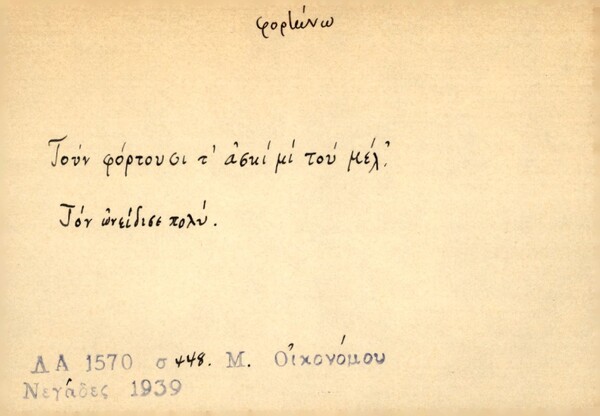 φορτώνω
Τούν φόρτουσι τ' ἀσκί μί τού μέλ'.
Τόν ὠνείδισε πολύ.
ΔΑ 1570 σ 448. Μ. Οἰκονόμου
Νεγάδες 1939